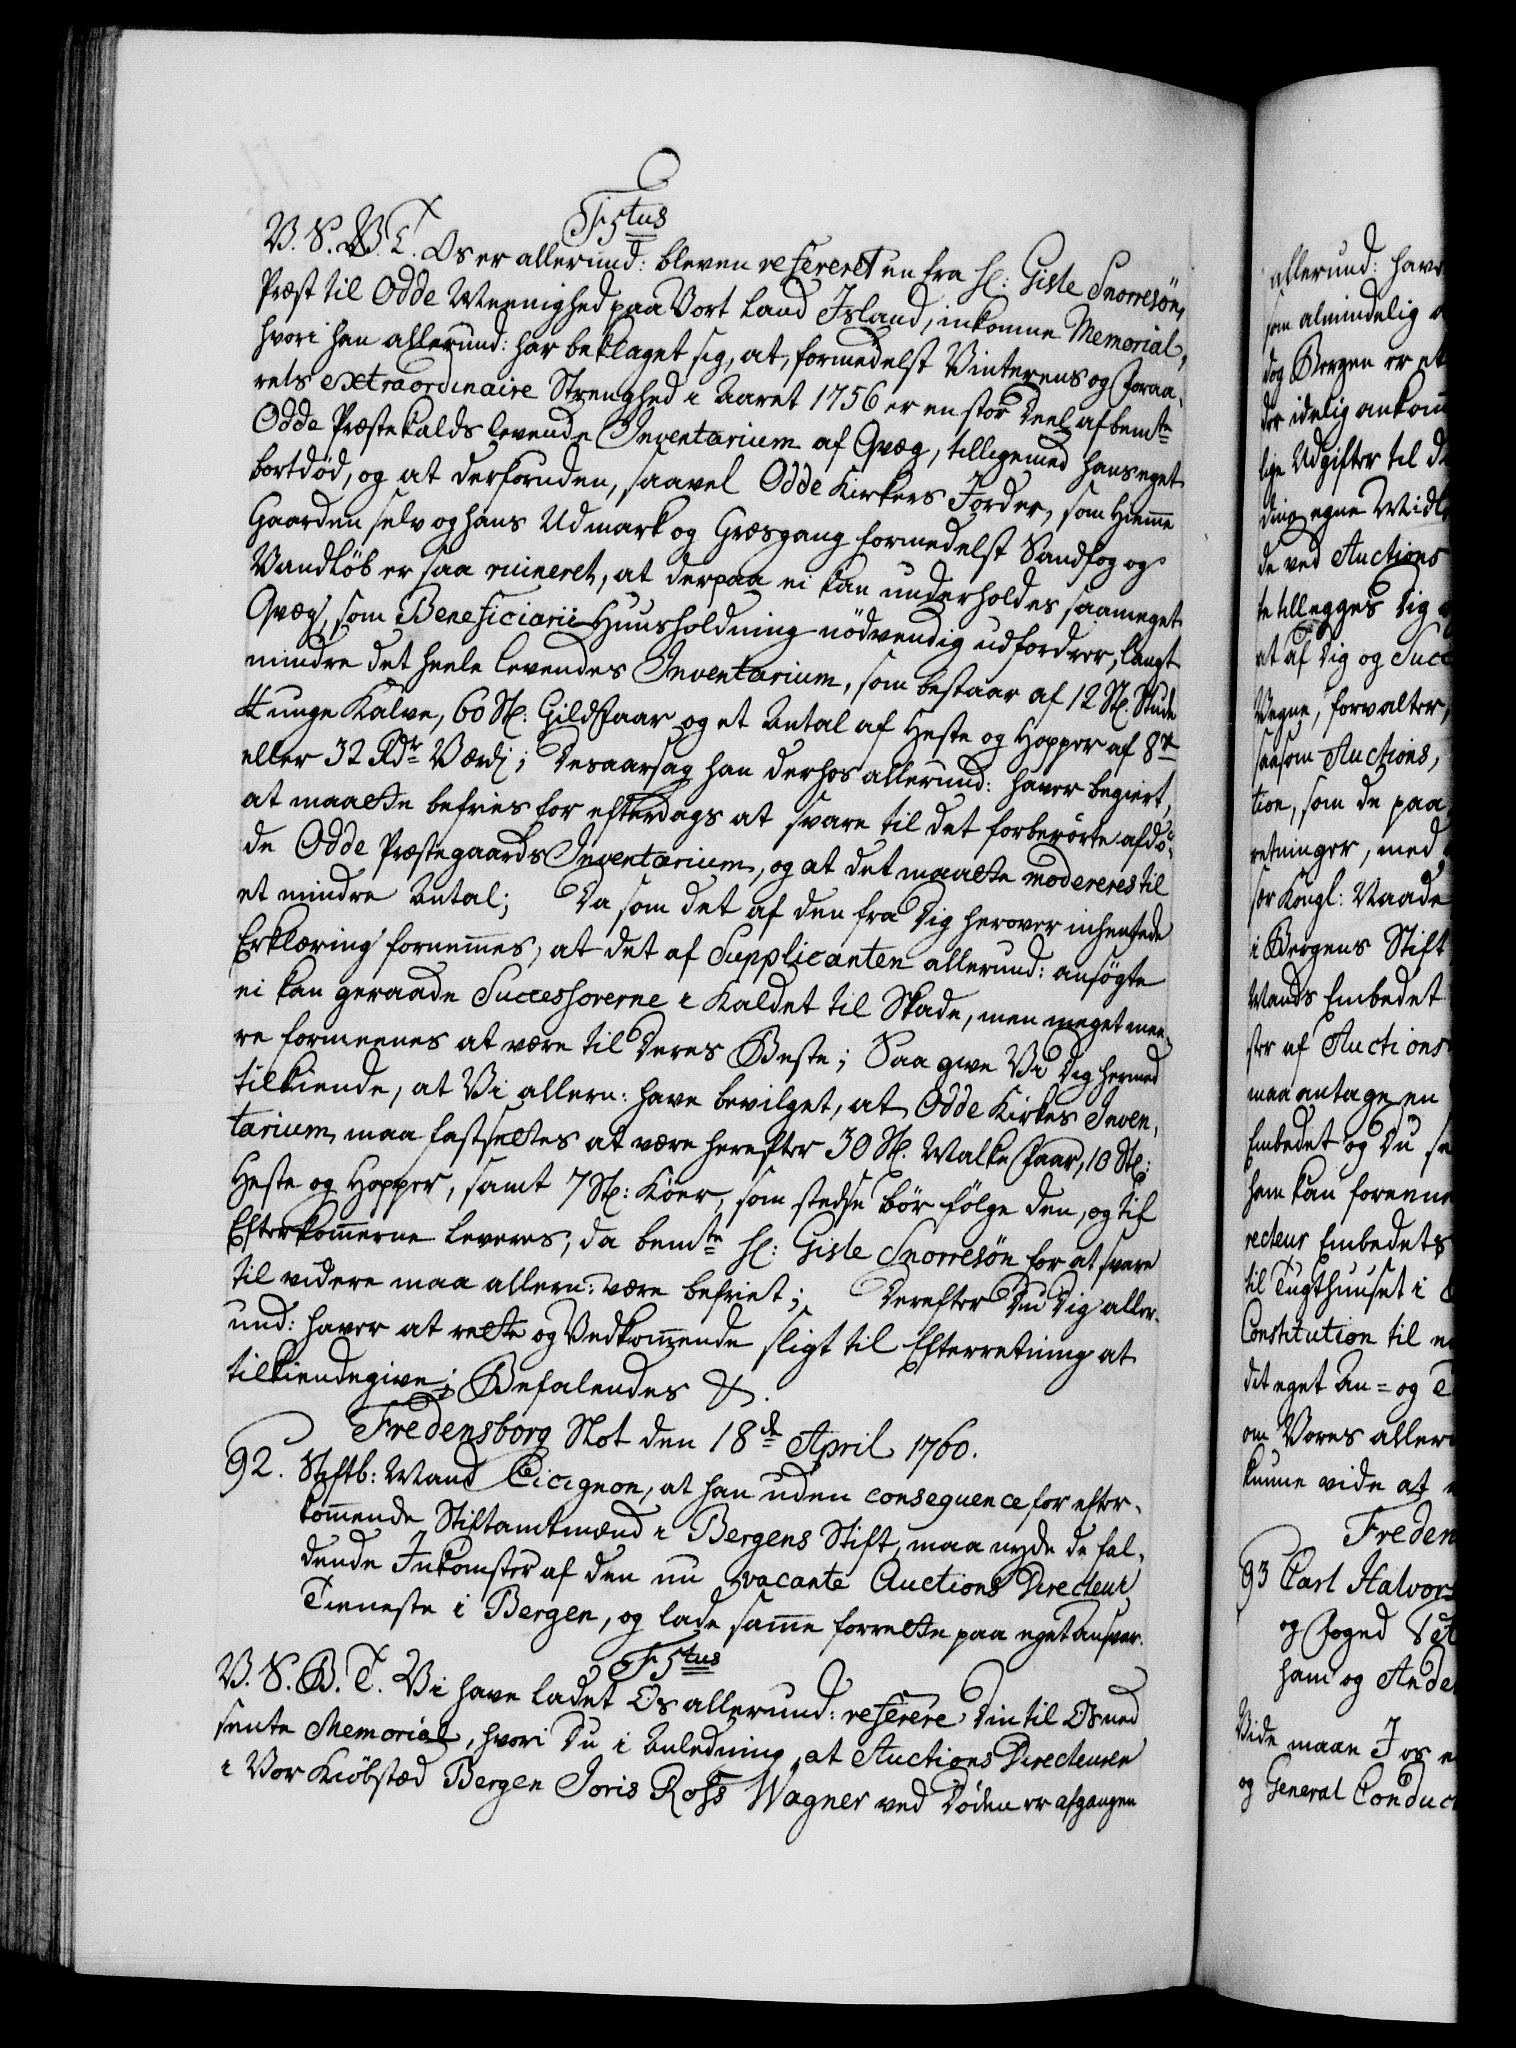 F 5tus
V. S. V. T. Os er allerund: bleven refereret en fra H: Gisle Snorresøn,
Præst til Odde Meenighed paa Vort Land Island, inkomne Memorial,
hvori han allerund: har beklaget sig, at, formedelst Vinterens og Foraa-
rets extraordinaire Strenghed i Aaret 1756 er en stor Deel af bemte
Odde Præstekalds levende Inventarium af Qvæg, tilligemed hans eget
bortdød, og at derforuden, saavel Odde Kirkes Jorder, som Hiemme
Gaarden selv og hans Udmark og Græsgang formedelst Sandfog og
Vandløb er saa ruineret, at derpaa ei kan underholdes saameget
Qvæg, som Beneficiarii Huusholdning nødvendig udfordrer, langt
mindre det heele levendes Inventarium, som bestaar af 12 St. Stude
4 unge Kalve, 60 St: Gildfaar og et Antal af Heste og Hopper af 8
eller 32 Rdr Værdi; Desaarsag han derhos allerund: haver begiert,
at maatte befries for efterdags at svare til det forberørte afdø-
de Odde Præstegaards Inventarium, og at det maatte modereres til
et mindre Antal; Da som det af den fra Dig herover inhentede
Erklæring fornemmes, at det af Supplicanten allerund: ansøgte
ei kan geraade Successorerne i Kaldet til Skade, men meget mee-
re formeenes at være til Deres Beste; Saa give Vi Dig hermed
tilkiende, at Vi allern: have bevilget, at Odde Kirkes Inven-
tarium maa fastsettes at være herefter 30 St. Malke Faar, 10 St:
Heste og Hopper, samt 7 St: Køer, som stedse bør følge den, og til
Efterkommerne leveres, da bemte H: Gisle Snorresøn for at svare
til videre maa allern: være befriet; Derefter Du Dig aller-
und: haver at rette og Vedkommende sligt til Efterretning at
tilkiendegive; Befalendes &.
Fredensborg Slot den 18de April 1760.
92. Stiftb: Mand Cicignon, at han uden consequence for efter-
kommende Stiftamtmænd i Bergens Stift, maa nyde de fal-
dende Inkomster af den nu vacante Auctions Directeur
Tieneste i Bergen, og lade samme forrette paa eget Ansvar.
F 5tus
V. S. B. T. Vi have ladet Os allerund: referere Din til Os ned
sente Memorial, hvori Du i Anledning, at Auctions Directeuren
i Vor Kiøbstæd Bergen Joris Ross Wagner ved Døden er afgangen
allerund: have
som almindelig
dog Bergen er et
der idelig ankom
lige Udgifter til
dine egne Midl
de ved Auctions
te tillegges Dig
at af Dig og Succ
Vegne, forvalter,
saasom Auctions,
tion, som de paa
retninger, med
sær Kongl: Naade
i Bergens Stift
Mands Embedet
ster af Auctions
maa antage en
Embedet og Du
ham kan forenne
recteur Embedets
til Tugthuuset i
Constitution til
dit eget An- og T
om Vores aller
kunne vide at
Freden
93 Carl Halvor
og Foged
ham og Ande
Vide maae I os
og General Conduc